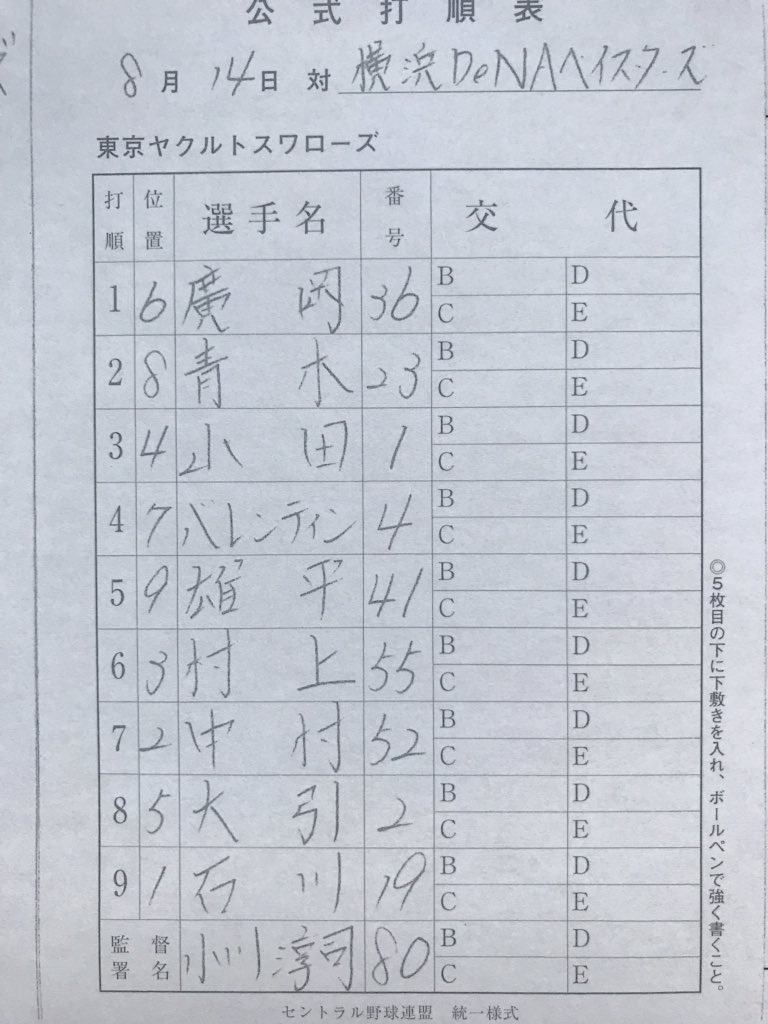 公式打順表
8月14日 対 横浜DeNAベイスターズ
東京ヤクルトスワローズ
打順 位置 選手名 番号 交代
1 6 廣岡 36 B D
C E
2 8 青木 23 B D
C E
3 4 山田 1 B D
C E
4 7 バレンティン 4 B D
C E
5 9 雄平 41 B D
C E
6 3 村上 55 B D
C E
7 2 中村 52 B D
C E
8 5 大引 2 B D
C E
9 1 石川 19 B D
C E
監督署名 小川淳司 80 B D
C E
◎5枚目の下に下敷きを入れ、ボールペンで強く書くこと。
セントラル野球連盟 統一様式